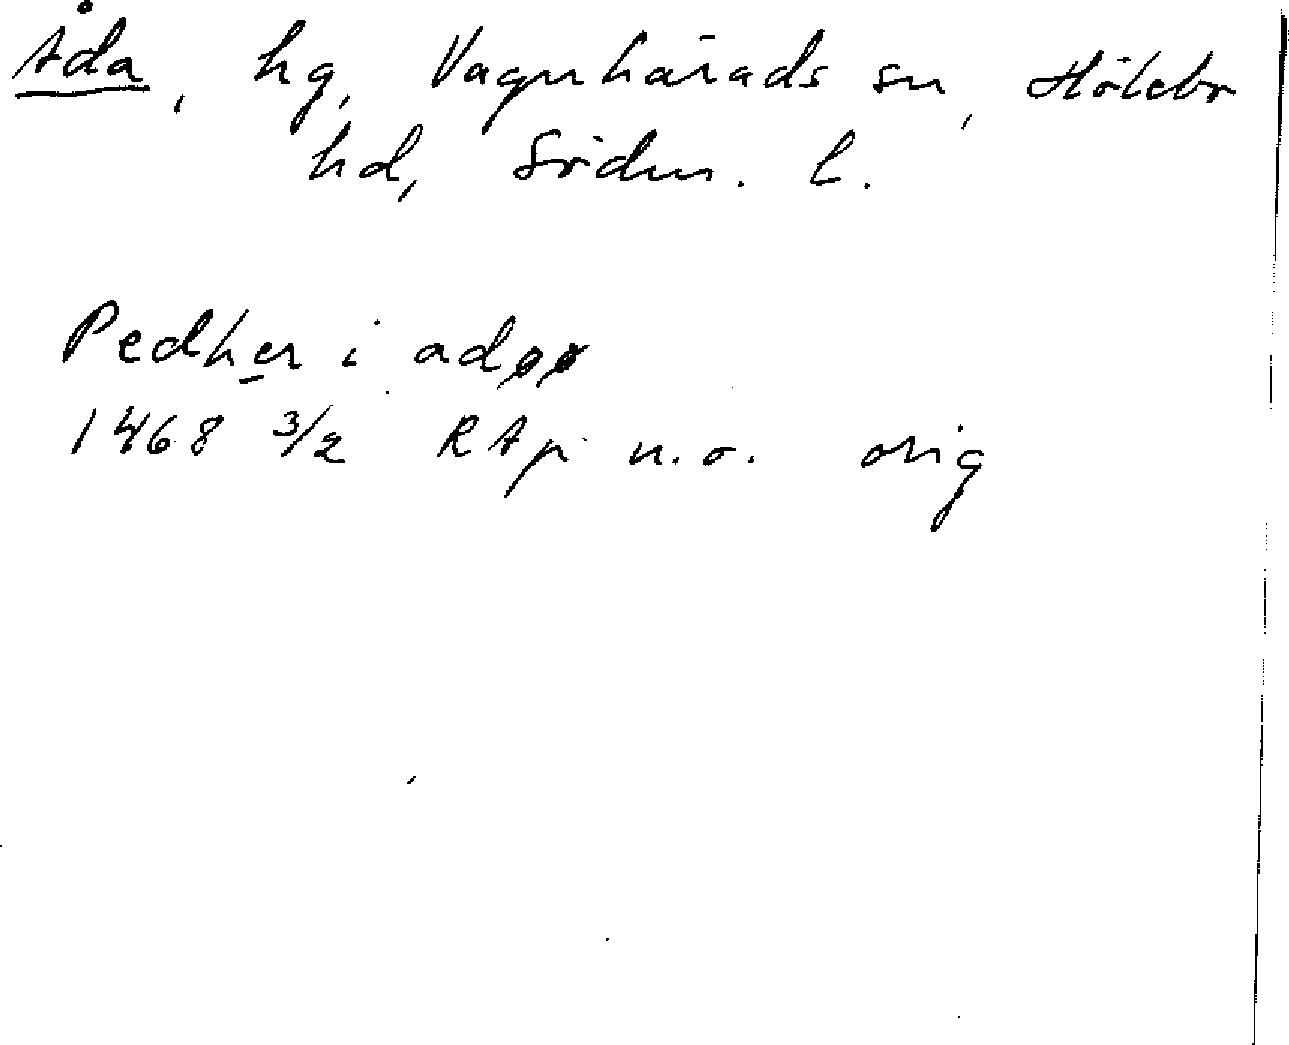 Åda, hg, Vagnhärads sn, Hölebo
hd, Södm. l.
Pedher i adøø
1468 3/2 RAp n.o. orig